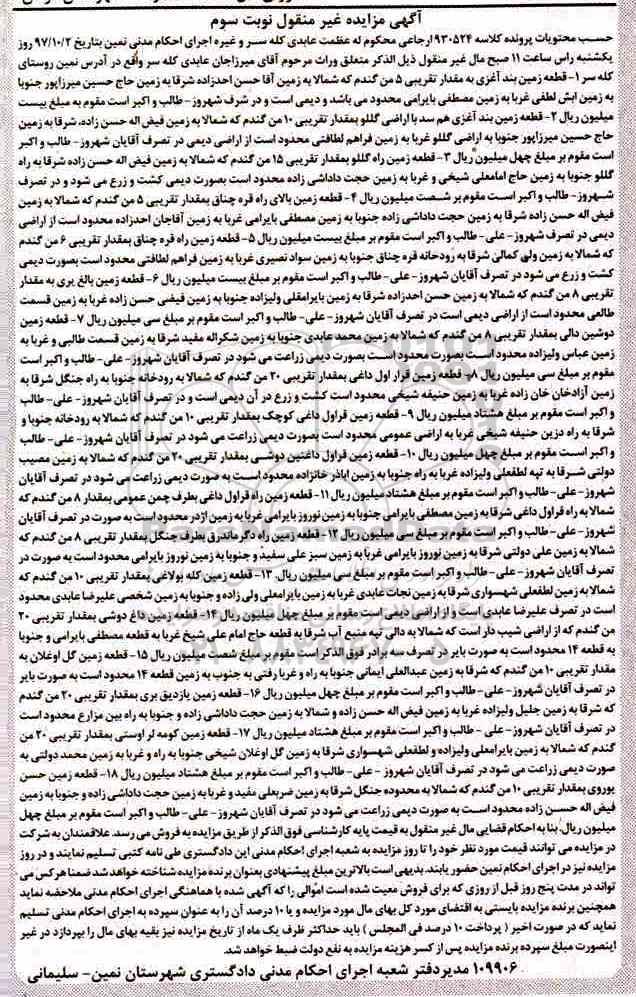 آگهی مزایده غیر منقول نوبت سوم
حسب محتویات پرونده کلاسه ۹۳۰۵۲۴ ارجاعی محکوم له عظمت عابدی کله سر و غیره اجرای احکام مدنی نمین بتاریخ ۹۷/۱۰/۲ روز
یکشنبه راس ساعت ۱۱ صبح مال غیر منقول ذیل الذکر متعلق وراث مرحوم آقای میرزاجان عابدی کله سر واقع در آدرس نمین روستای
کله سر ۱- قطعه زمین بند آغزی به مقدار تقریبی ۵ من گندم که شمالا به زمین آقا حسن احدزاده شرقا به زمین حاج حسین میرزاپور جنوبا
به زمین ابش لطفی غربا به زمین مصطفی بایرامی محدود می باشد و دیمی است و در شرف شهروز- طالب و اکبر است مقوم به مبلغ بیست
میلیون ریال ۲- قطعه زمین بند آغزی هم سد با اراضی گللو بمقدار تقریبی ۱۰ من گندم که شمالا به زمین فیض اله حسن زاده، شرقا به زمین
حاج حسین میرزاپور جنوبا به اراضی گللو غربا به زمین فراهم لطافتی محدود است از اراضی دیمی در تصرف آقایان شهروز- طالب و اکبر
است مقوم بر مبلغ چهل میلیون ریال ۳- قطعه زمین راه گللو بمقدار تقریبی ۱۵ من گندم که شمالا به زمین فیض اله حسن زاده شرقا به راه
گللو جنوبا به زمین حاج امامعلی شیخی و غربا به زمین حجت داداشی زاده محدود است بصورت دیمی کشت و زرع می شود و در تصرف
شهروز- طالب و اکبر است مقوم بر شصت میلیون ریال ۴- قطعه زمین بالای راه قره چناق بمقدار تقریبی ۵ من گندم که شمالا به زمین
فیض اله حسن زاده شرقا به زمین حجت داداشی زاده جنوبا به زمین مصطفی بایرامی غربا به زمین آقاجان احدزاده محدود است از اراضی
دیمی در تصرف شهروز- علی- طالب و اکبر است مقوم بر مبلغ بیست میلیون ریال ۵- قطعه زمین راه قره چناق بمقدار تقریبی ۶ من گندم
که شمالا به زمین ولی کمالی شرقا به رودخانه قره چناق جنوبا به زمین سواد نصیری غربا به زمین فراهم لطافتی محدود است بصورت دیمی
کشت و زرع می شود در تصرف آقایان شهروز- علی- طالب و اکبر است مقوم بر مبلغ بیست میلیون ریال ۶- قطعه زمین بالغ یری به مقدار
تقریبی ۸ من گندم که شمالا به زمین حسن احدزاده شرقا به زمین بایرامقلی ولیزاده جنوبا به زمین فیضی حسن زاده غربا به زمین قسمت
طالعی محدود است از اراضی دیمی است در تصرف آقایان شهروز- علی- طالب و اکبر است مقوم بر مبلغ سی میلیون ریال ۷- قطعه زمین
دوشین دالی بمقدار تقریبی ۸ من گندم که شمالا به زمین محمد عابدی جنوبا به زمین شکراله مفید شرقا به زمین قسمت طالبی و غربا به
زمین عباس ولیزاده محدود است بصورت محدود است بصورت دیمی زراعت می شود در تصرف آقایان شهروز- علی- طالب و اکبر است
مقوم بر مبلغ سی میلیون ریال ۸- قطعه زمین قرار اول داغی بمقدار تقریبی ۲۰ من گندم که شمالا به رودخانه جنوبا به راه جنگل شرقا به
زمین آزادخان خان زاده غربا به زمین حنیفه شیخی محدود است کشت و زرع در آن دیمی است و در تصرف آقایان شهروز- علی- طالب
و اکبر است مقوم بر مبلغ هشتاد میلیون ریال ۹- قطعه زمین قراول داغی کوچک بمقدار تقریبی ۱۰ من گندم که شمالا به رودخانه جنوبا و
شرقا به راه دزین حنیفه شیخی غربا به اراضی عمومی محدود است بصورت دیمی زراعت می شود در تصرف آقایان شهروز- علی- طالب
و اکبر است مقوم بر مبلغ چهل میلیون ریال ۱۰- قطعه زمین قراول داغنین دوشی بمقدار تقریبی ۲۰ من گندم که شمالا به زمین مصیب
دولتی شرقا به تپه لطفعلی ولیزاده غربا به راه جنوبا به زمین اباذر خانزاده محدود است به صورت دیمی زراعت می شود در تصرف آقایان
شهروز- علی- طالب و اکبر است مقوم بر مبلغ هشتاد میلیون ریال ۱۱- قطعه زمین راه قراول داغی بطرف چمن عمومی بمقدار ۸ من گندم که
شمالا به راه قراول داغی شرقا به زمین مصطفی بایرامی جنوبا به زمین نوروز بایرامی غربا به زمین اژدر محدود است به صورت در تصرف آقایان
شهروز- علی- طالب و اکبر است مقوم بر مبلغ سی میلیون ریال ۱۲- قطعه زمین راه دگرماندرق بطرف جنگل بمقدار تقریبی ۸ من گندم که
شمالا به زمین علی دولتی شرقا به زمین نوروز بایرامی غربا به زمین سبز علی سفید و جنوبا به زمین نوروز بایرامی محدود است به صورت در
تصرف آقایان شهروز- علی- طالب و اکبر است مقوم بر مبلغ سی میلیون ریال. ۱۳- قطعه زمین کله بولاغی بمقدار تقریبی ۱۰ من گندم که
شمالا به زمین لطفعلی شهسواری شرقا به زمین نجات عابدی غربا به زمین بایرامعلی ولی زاده و جنوبا به زمین شخصی علیرضا عابدی محدود
است در تصرف علیرضا عابدی است و از اراضی دیمی است مقوم بر مبلغ چهل میلیون ریال ۱۴- قطعه زمین داغ دوشی بمقدار تقریبی ۲۰
من گندم که از اراضی شیب دار است که شمالا به دالی تپه منبع آب شرقا به قطعه حاج امام علی شیخ غربا به قطعه مصطفی بایرامی و جنوبا
به قطعه ۱۴ محدود است به صورت بایر در تصرف سه برادر فوق الذکر است مقوم بر مبلغ شصت میلیون ریال ۱۵- قطعه زمین گل اوغلان به
مقدار تقریبی ۱۰ من گندم که شرقا به زمین عبدالعلی ایمانی جنوبا به راه و غربا رفتی به جنوب به قطعه ۱۴ محدود است به صورت بایر
در تصرف آقایان شهروز- علی- طالب و اکبر است مقوم بر مبلغ چهل میلیون ریال ۱۶- قطعه زمین یازدیق یری بمقدار تقریبی ۲۰ من گندم
که شرقا به زمین جلیل ولیزاده غربا به زمین فیض اله حسن زاده و شمالا به زمین حجت داداشی زاده و جنوبا به راه بین مزارع محدود است
در تصرف آقایان شهروز- علی- طالب و اکبر است مقوم بر مبلغ هشتاد میلیون ریال ۱۷- قطعه زمین کومه لر اوستی بمقدار تقریبی ۲۰ من
گندم که شمالا به زمین بایرامعلی ولیزاده و لطفعلی شهسواری شرقا به زمین گل اوغلان شیخی جنوبا به راه و غربا به زمین محمد دولتی به
صورت دیمی زراعت می شود در تصرف آقایان شهروز- علی- طالب و اکبر است مقوم بر مبلغ هشتاد میلیون ریال ۱۸- قطعه زمین حسن
یوروی بمقدار تقریبی ۱۰ من گندم که شمالا به محدوده جنگل شرقا به زمین ضربعلی مفید و غربا به زمین حجت داداشی زاده و جنوبا به زمین
فیض اله حسن زاده محدود است به صورت دیمی زراعت می شود در تصرف آقایان شهروز- علی- طالب و اکبر است مقوم بر مبلغ چهل
میلیون ریال بنا به احکام قضایی مال غیر منقول به قیمت پایه کارشناسی فوق الذکر از طریق مزایده به فروش می رسد. علاقمندان به شرکت
در مزایده می توانند قیمت مورد نظر خود را تا روز مزایده به شعبه اجرای احکام مدنی این دادگستری طی نامه کتبی تسلیم نمایند و در روز
مزایده نیز در اجرای احکام نمین حضور یابند. بدیهی است بالاترین مبلغ پیشنهادی بعنوان برنده مزایده شناخته خواهد شد ضمنا هر کس می
تواند در مدت پنج روز قبل از روزی که برای فروش معیت شده است اموالی را که آگهی شده با هماهنگی اجرای احکام مدنی ملاحضه نماید
همچنین برنده مزایده بایستی به اقتضای مورد کل بهای مال مورد مزایده و یا ۱۰ درصد آن را به عنوان سپرده به اجرای احکام مدنی تسلیم
نماید که در صورت اخیر ( پرداخت ۱۰ درصد فی المجلس ) باید حداکثر ظرف یک ماه از تاریخ مزایده نیز بقیه بهای مال را بپردازد در غیر
اینصورت مبلغ سپرده برنده مزایده پس از کسر هزینه مزایده به نفع دولت ضبط خواهد شد.
۱۰۹۹۰۶ مدیر دفتر شعبه اجرای احکام مدنی دادگستری شهرستان نمین- سلیمانی